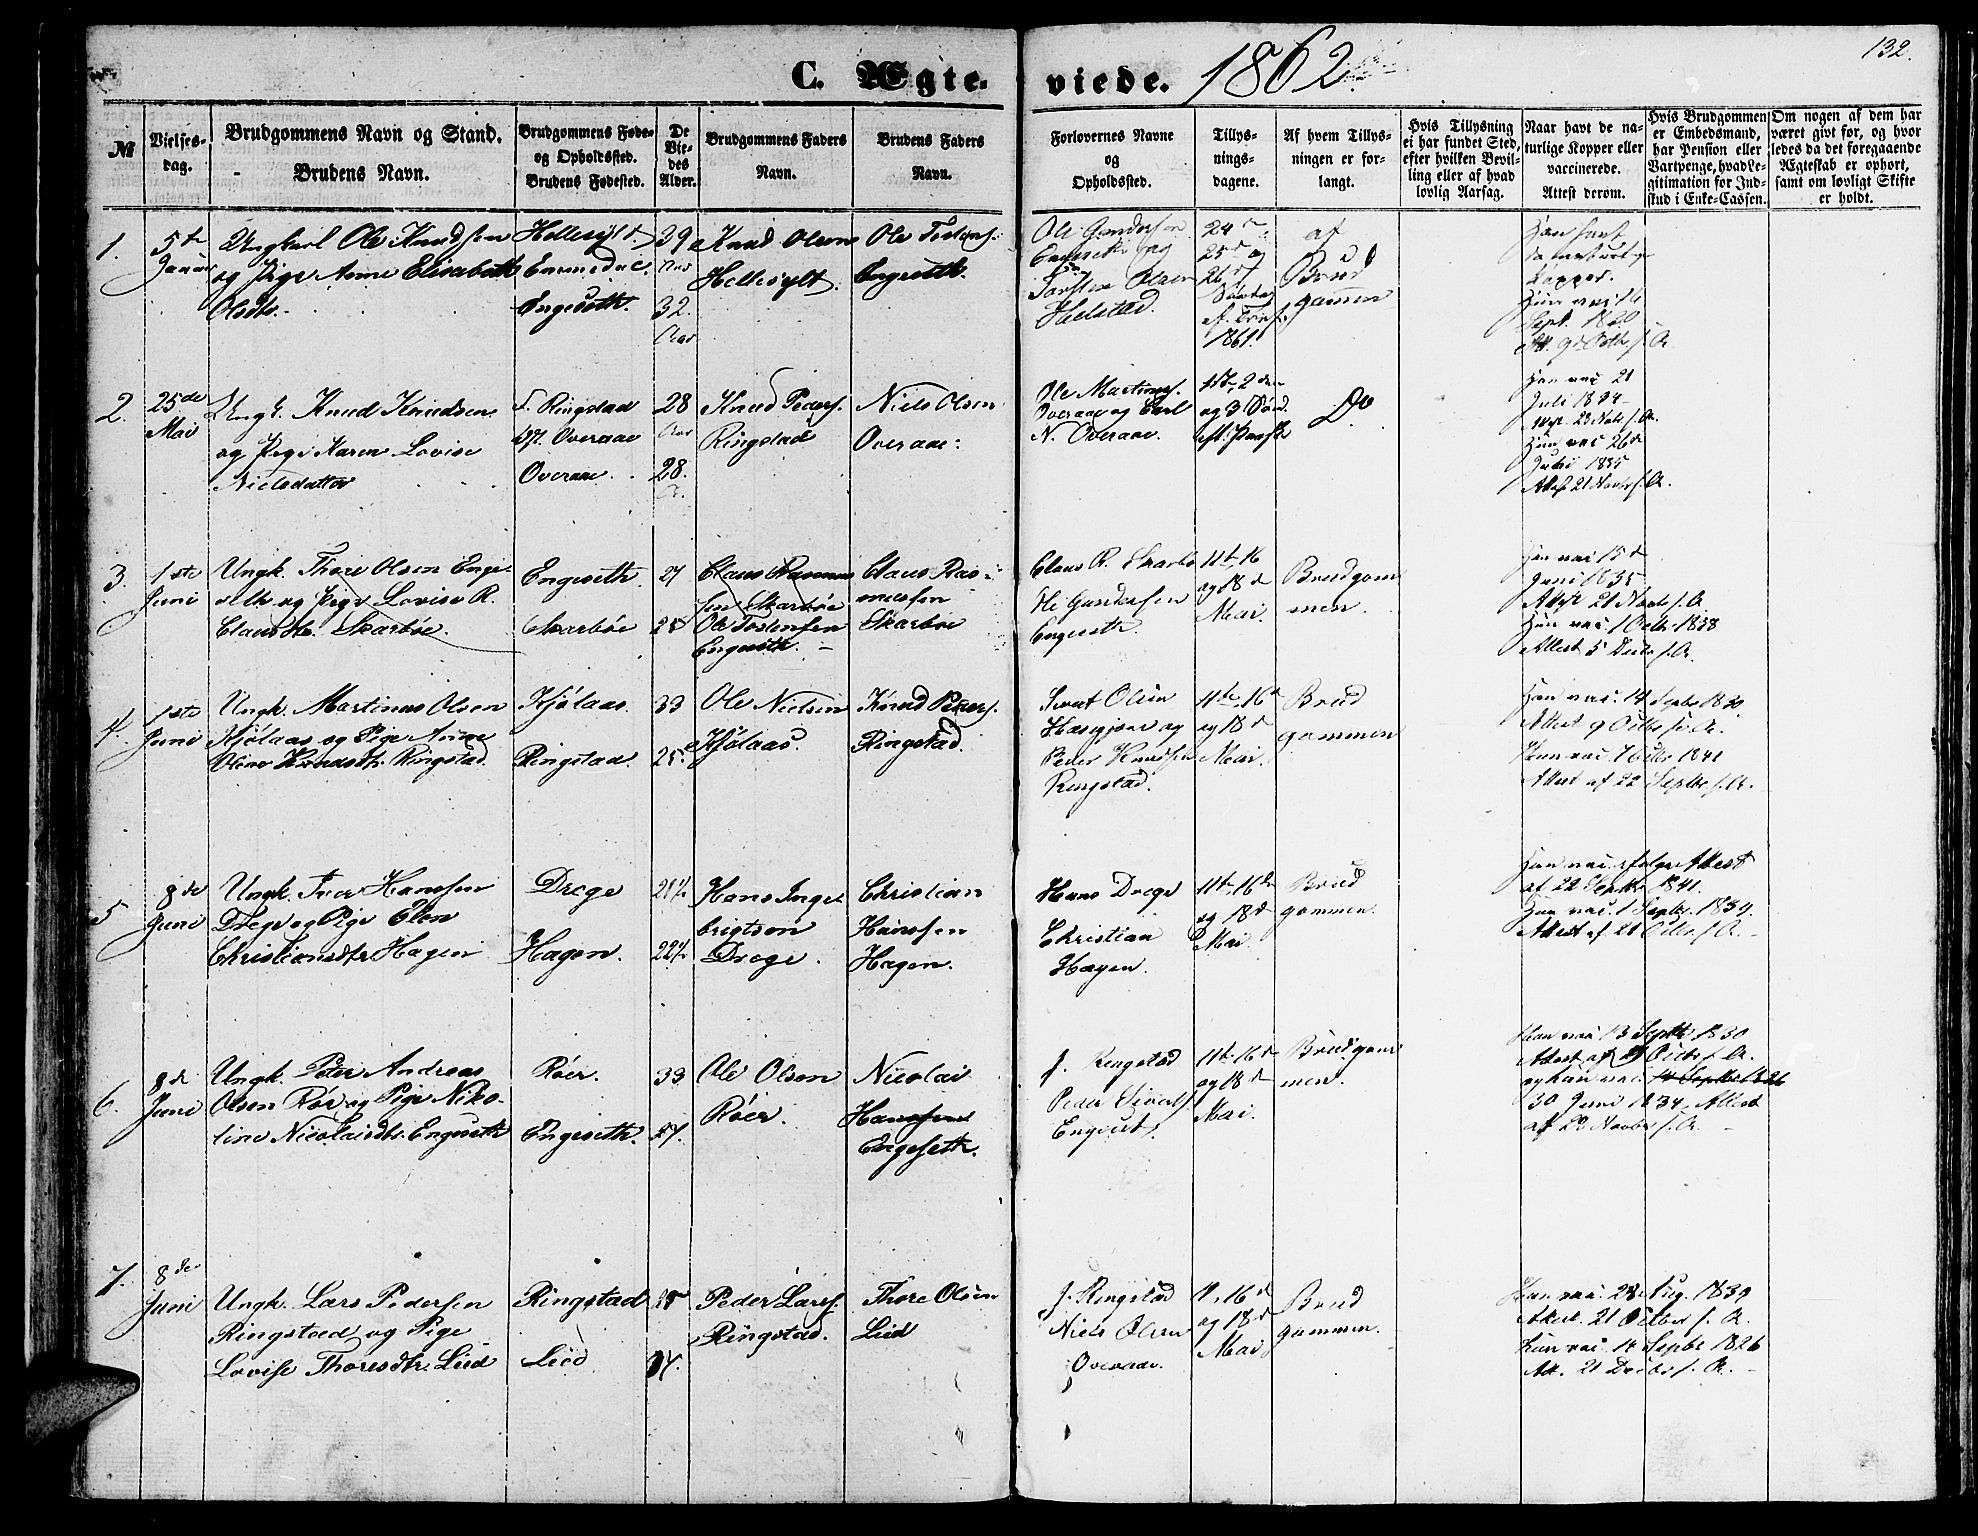 132.
C. Ægte-
viede. 1862.
№
Vielses-
dag.
Brudgommens Navn og Stand.
Brudens Navn.
Brudgommens Føde-
og Opholdssted.
Brudens Fødested.
De
Vie-
des
Alder.
Brudgommens Faders
Navn.
Brudens Faders
Navn.
Forlovernes Navne
og
Opholdssted.
Tillys-
nings-
dagene.
Af hvem Tillys-
ningen er for-
langt.
Hvis Tillysning
ei har fundet Sted,
efter hvilken Bevil-
ling eller af hvad
lovlig Aarsag.
Naar havt de na-
turlige Kopper eller
vaccinerede.
Attest derom.
Hvis Brudgommen
er Embedsmand,
har Pension eller
Vartpenge, hvad Le-
gitimation for Ind-
skud i Enke-Cassen.
Om nogen af dem har
været givt før, og hvor
ledes da det foregaaende
Ægteskab er ophørt,
samt om lovligt Skifte
er holdt.
1.
5te
Ungkarl Ole Knudsen
og Pige Anne Elisabeth
Olsdtr.
Hellesylt
Engeseth.
39
Aar
32.
Aar
Knud Olsen
Hellesylt.
Ole Tostens.
Engeseth.
Ole Gundersen
og
Torsten Olsen
24de
25d og
26d
Søndag
ef. Trinf.
1861.
af
Brud
gommen
Han havt
de naturlige
Kopper.
Hun vac. 16
Sept. 1830
Att. 9d Octb. f. A.
2.
25de
Mai
Ungk. Knud Knudsen
og Pige Karen Lovise
Nielsdatter
f. Ringstad
Opf. Overaae
Overaae.
28
Aar
28.
A.
Knud Peders.
Ringstad
Niels Olsen
Overaae:
Ole Martinus.
Overaae og Carl
N. Overaae.
1ste, 2den
og 3 Sønd.
eft. Paaske
Do
Han vac 21
Juli 1834
Att. 23 Novb. f. A.
Hun vac 26d
Juli 1835
Attest 21 Novbr f. A.
3.
1ste
Juni
Ungk. Thore Olsen Enge-
seth og Pige Lovise R.
Claus dtr. Skarbøe.
Engeseth
Skarbøe
27
25
Claus Rasmus
sen Skarbøe
Ole Tostensen
Engeseth.
Claus Ras-
mussen
Skarbøe
Claus R. Skarbø
Ole Gundersen
Engeseth.
11te 16
og 18d
Mai.
Brudgom
men.
Han vac 15d
Juni 1835
Attest 21 Novbr f. A.
Hun vac. 1 Octbr 1838
Attest 5 Decbr f. A.
4.
1ste
Juni
Ungk. Martinus Olsen
Kjølaas og Pige Anne
Oline Knudsdtr. Ringstad.
Kjølaas.
Ringstad.
33
25.
Ole Nielsen
Kjølaas.
Knud Peders.
Ringstad.
Sivert Olsen
og
Peder Knudsen
Ringstad.
11te, 16d
og 18d
Mai.
Brud
gommen
Han vac. 14 Septbr 1830
Attest 9 Octbr f. A.
Hun vac. 7 Octbr 1841
Attest af 22 Septbr f. A.
5
8de
Juni
Ungk. Iver Hanssen
Drege og Pige Elen
Christiansdtr Hagen
Drege
Hagen.
Hans Inge-
brigtson
Drege.
Christian
Hanssen
Hagen.
Hans Drege
Christian
Hagen.
11te 16de
og 18d
Mai.
Brud
gommen.
Han vac. ifølge Attest
af 22 Septbr 1841.
Hun vac. 1 Septbr. 1839.
Attest af 21 Octbr f. A.
6.
8de
Juni
Ungk. Peter Andreas
Olsen Rør og Pige Niko-
line Nicolaisdtr. Engeseth
Røer.
Engeseth.
33
27.
Ole Olsen
Røer.
Nicolai
Hanssen
Engeseth.
J. Ringstad
Peder Sivert
11te 16d
og 18d
Mai.
Brudgom
men.
Han vac. 13 Septbr 1830
Attest af 21 Octbr f. A.
og hun vac. 14 Septbr 1826
30 Juni 1834. Attest
af 23 Novbr f. A.
7.
8de
Juni
Ungk. Lars Pedersen
Ringstad og Pige
Lovise Thoresdtr. Lied
Ringstad
Lied
Peder Larss.
Ringstad.
Thore Olsen
Lied
J. Ringstad
Niels Olsen
Overaae.
11, 16d
og 18d
Mai
Brud
gommen.
Han vac. 28 Aug. 1839
Attest. 21 Octbr f. A.
Hun vac. 14 Septbr 1826
Att. 21 Decbr f. A.